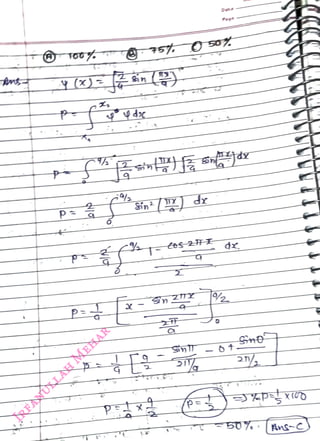 Date
Page
(A) 100%. (B) 75%. (C) 50%
Ans- ψ(x) = √2/a sin (πx/a)
P = ∫ₓ₁^x₂ ψ* ψ dx
P = ∫₀^a/2 √2/a sin(πx/a) √2/a sin(πx/a) dx
P = 2/a ∫₀^a/2 sin² (πx/a) dx
P = 2/a ∫₀^a/2 1 - cos 2πx/a / 2 dx
P = 1/a [x - sin 2πx/a / 2π/a]₀^a/2
P = 1/a [a/2 - sin π / 2π/a - 0 + sin 0 / 2π/a]
P = 1/a × a/2 (P = 1/2) ⇒ % P = 1/2 × 100
= 50%. Ans-C
IRFANULLAH MEHAR